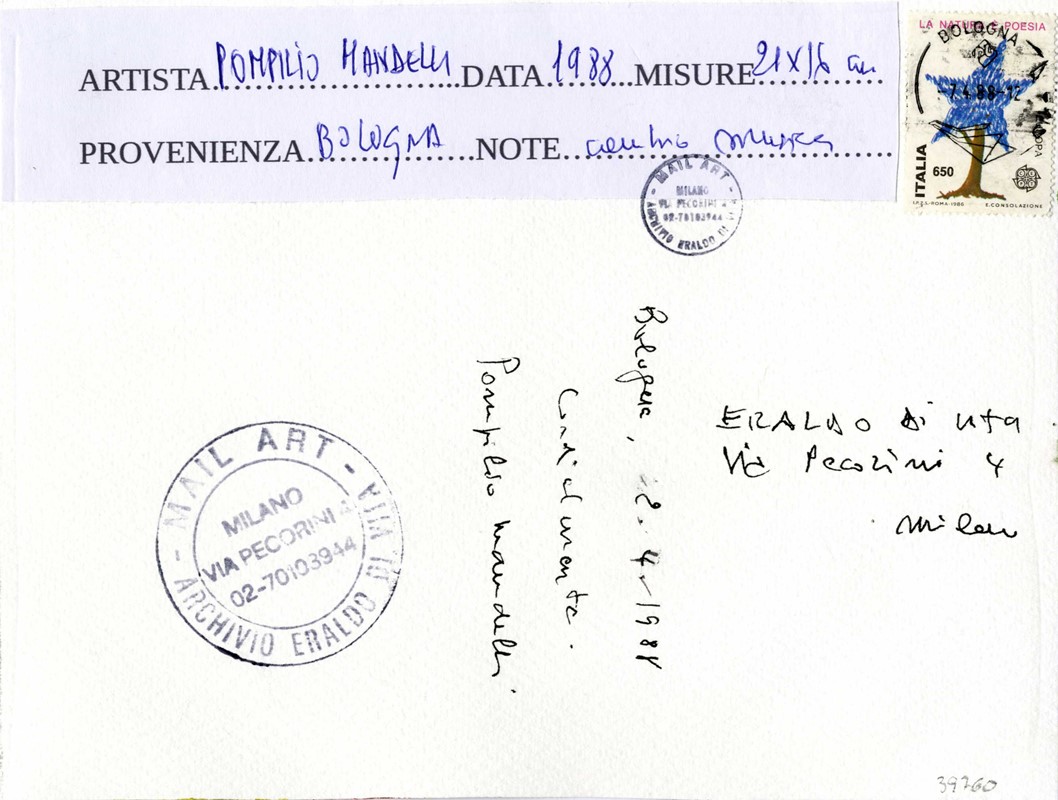 ARTISTA POMPILIO MANDELLI DATA 1988 MISURE 21x16 cm
PROVENIENZA BOLOGNA NOTE
LA NATURA È POESIA
BOLOGNA
-7.4.88-12
ITALIA 650
EUROPA
I.P.Z.S.-ROMA-1986 E.CONSOLAZIONE
- MAIL ART -
MILANO
VIA PECORINI 4
02-70103944
ARCHIVIO ERALDO DI VITA
Bologna, 2-4-1988
Cordialmente.
Pompilio Mandelli.
ERALDO Di Vita
Via Pecorini 4
Milano
- MAIL ART -
MILANO
VIA PECORINI 4
02-70103944
ARCHIVIO ERALDO DI VITA
39260